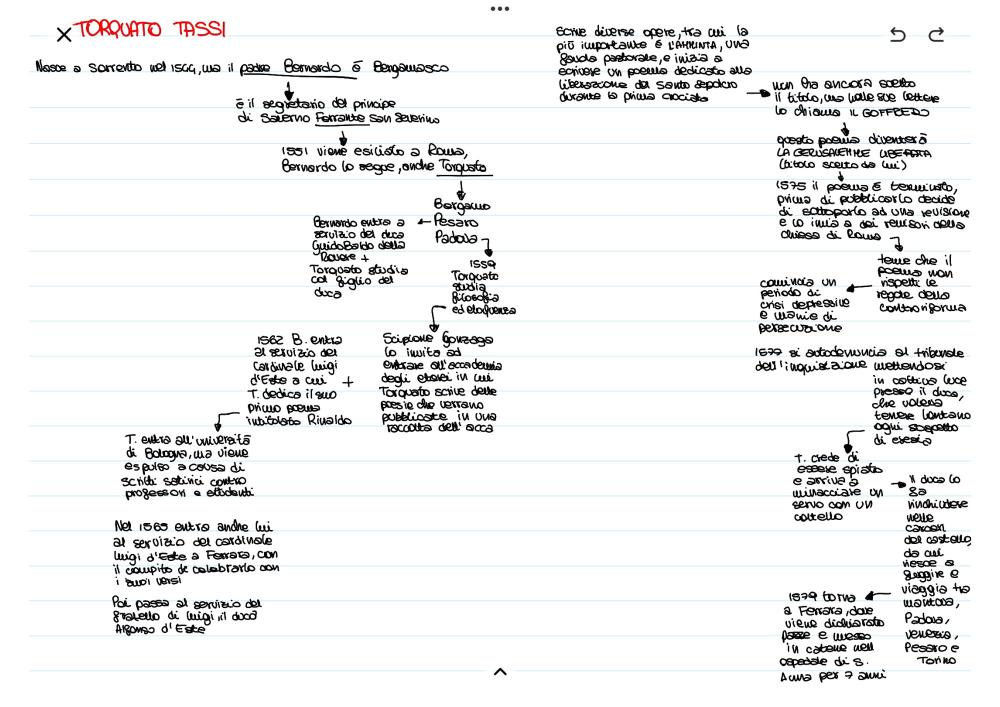 TORQUATO TASSI
Nasce a Sorrento nel 1544, ma il padre Bernardo è Bergamasco
è il segretario del principe
di Salerno Ferrante San Severino
1551 viene esiliato a Roma,
Bernardo lo segue, anche Torquato
Bergamo
Pesaro
Padova
Bernardo entra a
servizio del duca
Guidobaldo della
Rovere +
Torquato studia
col figlio del
duca
1559
Torquato
studia
filosofia
ed eloquenza
Scipione Gonzaga
lo invita ad
entrare all'accademia
degli eterei in cui
Torquato scrive delle
poesie che verrano
pubblicate in una
raccolta dell'acca
1562 B. entra
al servizio del
cardinale Luigi
d'Este a cui +
T. dedica il suo
primo poema
intitolato Rinaldo
T. entra all'università
di Bologna, ma viene
espulso a causa di
scritti satirici contro
professori e studenti
Nel 1565 entra anche lui
al servizio del cardinale
Luigi d'Este a Ferrara, con
il compito di celebrarlo con
i suoi versi
Poi passa al servizio del
fratello di Luigi, il duca
Alfonso d'Este
Scrive diverse opere, tra cui la
più importante è L'AMMINTA, una
favola pastorale, e inizia a
scrivere un poema dedicato alla
liberazione del Santo Sepolcro
durante la prima crociata
non ha ancora scelto
il titolo, ma nelle sue lettere
lo chiama IL GOFFREDO
questo poema diventerà
LA GERUSALEMME LIBERATA
(titolo scelto da lui)
1575 il poema è terminato,
prima di pubblicarlo decide
di sottoporlo ad una revisione
e lo invia a dei revisori della
chiesa di Roma
teme che il
poema non
rispetti le
regole della
controriforma
comincia un
periodo di
crisi depressive
e manie di
persecuzione
1577 si autodenuncia al tribunale
dell'inquisizione mettendosi
in cattiva luce
presso il duca,
che voleva
tenere lontano
ogni sospetto
di eresia
T. crede di
essere spiato
e arriva a
minacciare un
servo con un
coltello
Il duca lo
fa
rinchiudere
nelle
carceri
del castello,
da cui
riesce a
fuggire e
viaggia tra
Mantova,
Padova,
Venezia,
Pesaro e
Torino
1579 torna
a Ferrara, dove
viene dichiarato
pazzo e messo
in catene nell
ospedale di S.
Anna per 7 anni